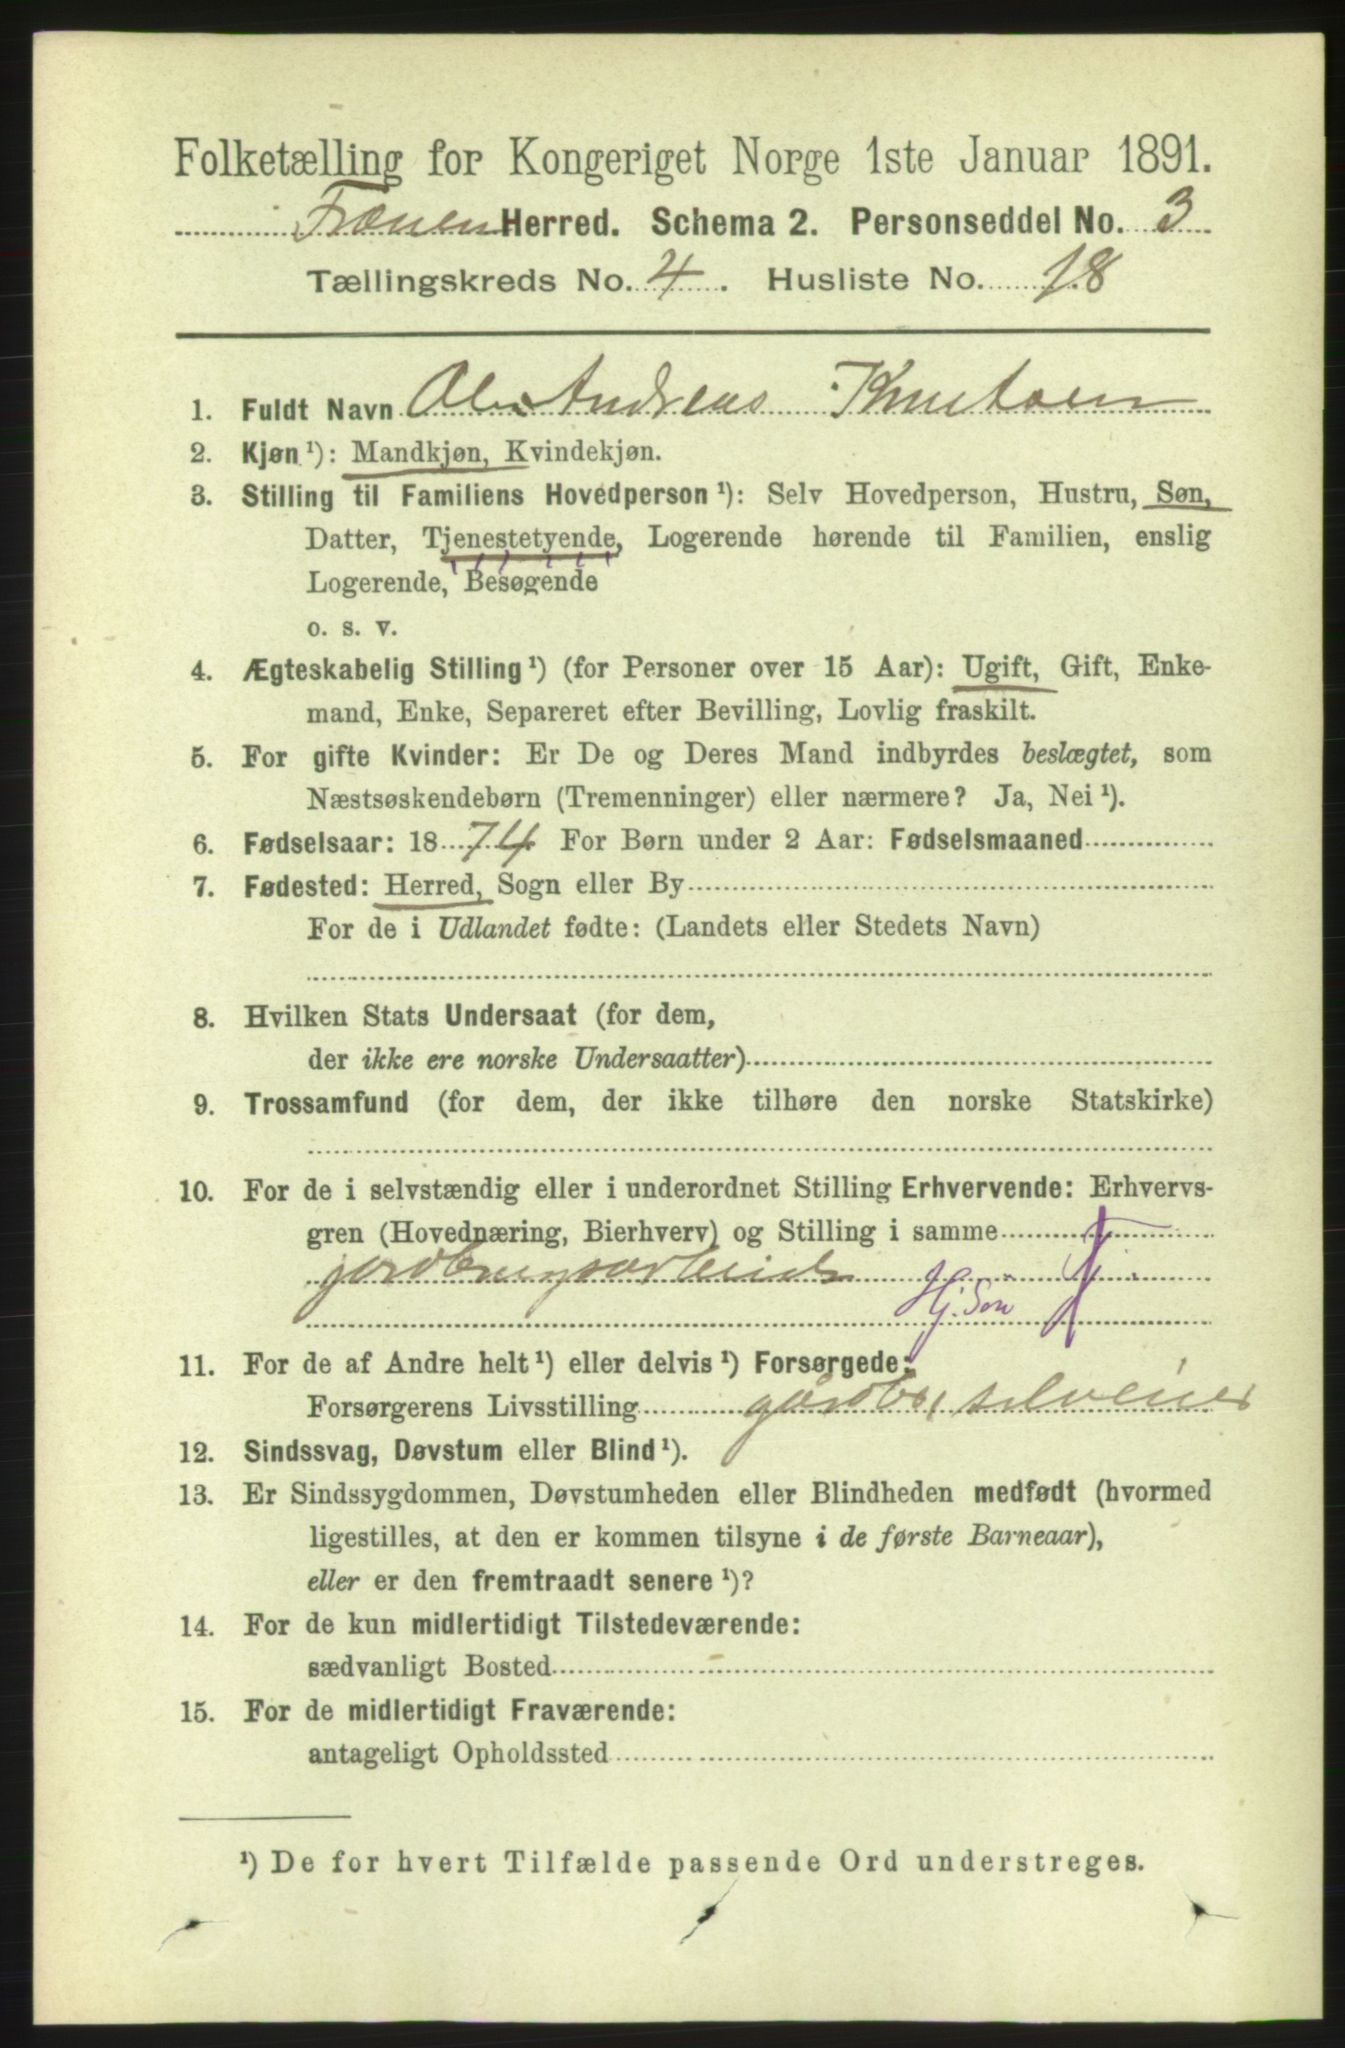 Folketælling for Kongeriget Norge 1ste Januar 1891.
Frænen Herred. Schema 2. Personseddel No. 3
Tællingskreds No. 4. Husliste No. 18
1. Fuldt Navn Ole Andreas Knutsen
2. Kjøn ¹): Mandkjøn, Kvindekjøn.
3. Stilling til Familiens Hovedperson ¹): Selv Hovedperson, Hustru, Søn,
Datter, Tjenestetyende, Logerende hørende til Familien, enslig
Logerende, Besøgende
o. s. v.
4. Ægteskabelig Stilling ¹) (for Personer over 15 Aar): Ugift, Gift, Enke-
mand, Enke, Separeret efter Bevilling, Lovlig fraskilt.
5. For gifte Kvinder: Er De og Deres Mand indbyrdes beslægtet, som
Næstsøskendebørn (Tremenninger) eller nærmere? Ja, Nei ¹).
6. Fødselsaar: 1874 For Børn under 2 Aar: Fødselsmaaned
7. Fødested: Herred, Sogn eller By
For de i Udlandet fødte: (Landets eller Stedets Navn)
8. Hvilken Stats Undersaat (for dem,
der ikke ere norske Undersaatter)
9. Trossamfund (for dem, der ikke tilhøre den norske Statskirke)
10. For de i selvstændig eller i underordnet Stilling Erhvervende: Erhvervs-
gren (Hovednæring, Bierhverv) og Stilling i samme
jordbrugsarbeide
Hj. Søn
11. For de af Andre helt ¹) eller delvis ¹) Forsørgede:
Forsørgerens Livsstilling gårdbr, selveier
12. Sindssvag, Døvstum eller Blind ¹).
13. Er Sindssygdommen, Døvstumheden eller Blindheden medfødt (hvormed
ligestilles, at den er kommen tilsyne i de første Barneaar),
eller er den fremtraadt senere ¹)?
14. For de kun midlertidigt Tilstedeværende:
sædvanligt Bosted
15. For de midlertidigt Fraværende:
antageligt Opholdssted
¹) De for hvert Tilfælde passende Ord understreges.